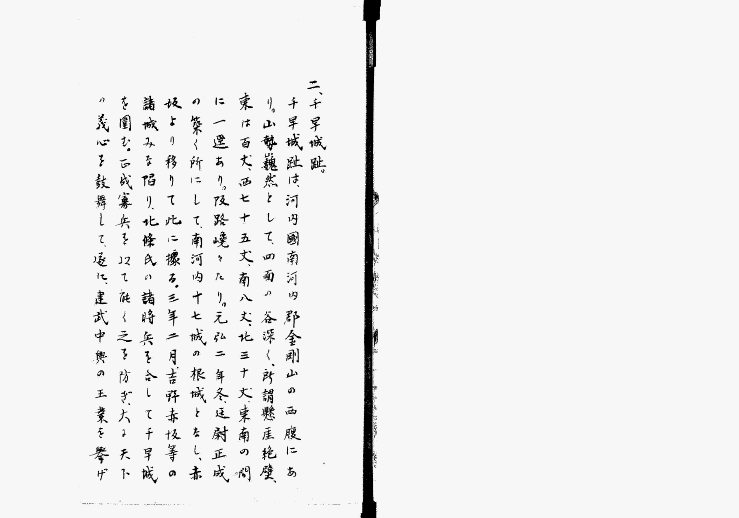 二、千早城趾。
千早城趾は、河内國南河内郡金剛山の西腹にあ
り。山勢巍然として、四面の谷深く、所謂懸崖絶壁、
東は百丈、西七十五丈、南八丈、北三十丈、東南の間
に一逕あり。阪路嶢々たり。元弘二年冬、廷尉正成
の築く所にして、南河内十七城の根城となし、赤
坂より移りて此に據る。三年二月、吉野赤坂等の
諸城みな陷り、北條氏の諸將兵を合して千早城
を圍む。正成寡兵を以て能く之を防ぎ、大に天下
の義心を鼓舞して、遂に、建武中興の王業を擧げ